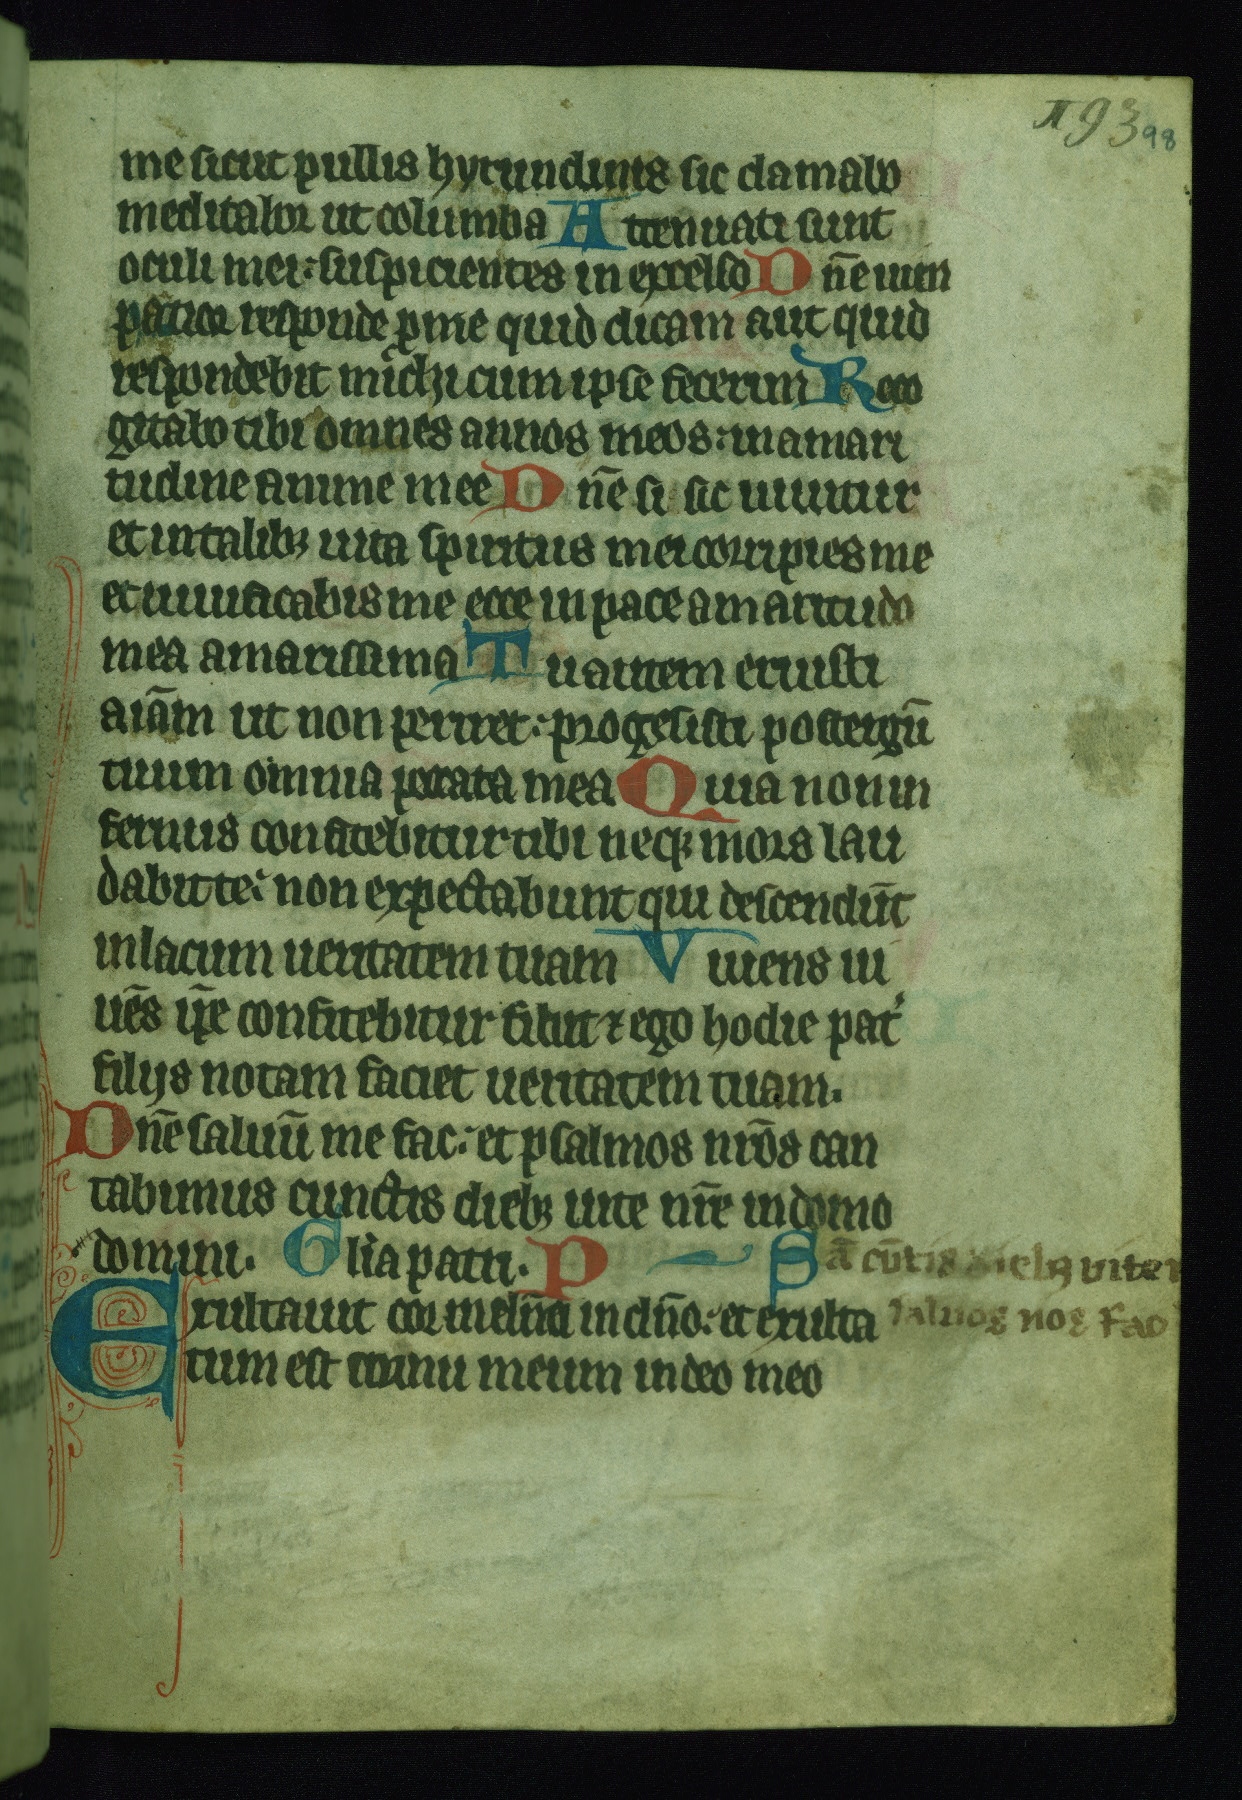 193 98
me sicut pullis hyrundinis sic clamabo
meditabor ut columba Attenuati sunt
oculi mei: suspicientes in excelso Dn̄e uim
patior responde ꝓme quid dicam aut quid
respondebit michi cum ipse fecerim Reco
gitabo tibi omnes annos meos: in amari
tudine anime mee Dn̄e si sic uiuitur
et in talibꝫ uita spiritus mei corripies me
et uiuificabis me ecce in pace amaritudo
mea amarissima Tu autem eruisti
aīam ut non periret: proiecisti post tergū
tuum omnia peccata mea Quia non in
fernus confitebitur tibi neqꝫ mors lau
dabit te: non expectabunt qui descendūt
in lacum ueritatem tuam Viuens ui
uēs ip̄e confitebitur tibi ⁊ ego hodie pat̉
filijs notam faciet ueritatem tuam.
Dn̄e saluū me fac: et psalmos nr̄os can
tabimus cunctis diebꝫ uite nr̄e in domo
domini. Glīa patri. P S
Exultauit cor meū in dn̄o: et exulta saluos nos fac
tum est cornu meum in deo meo